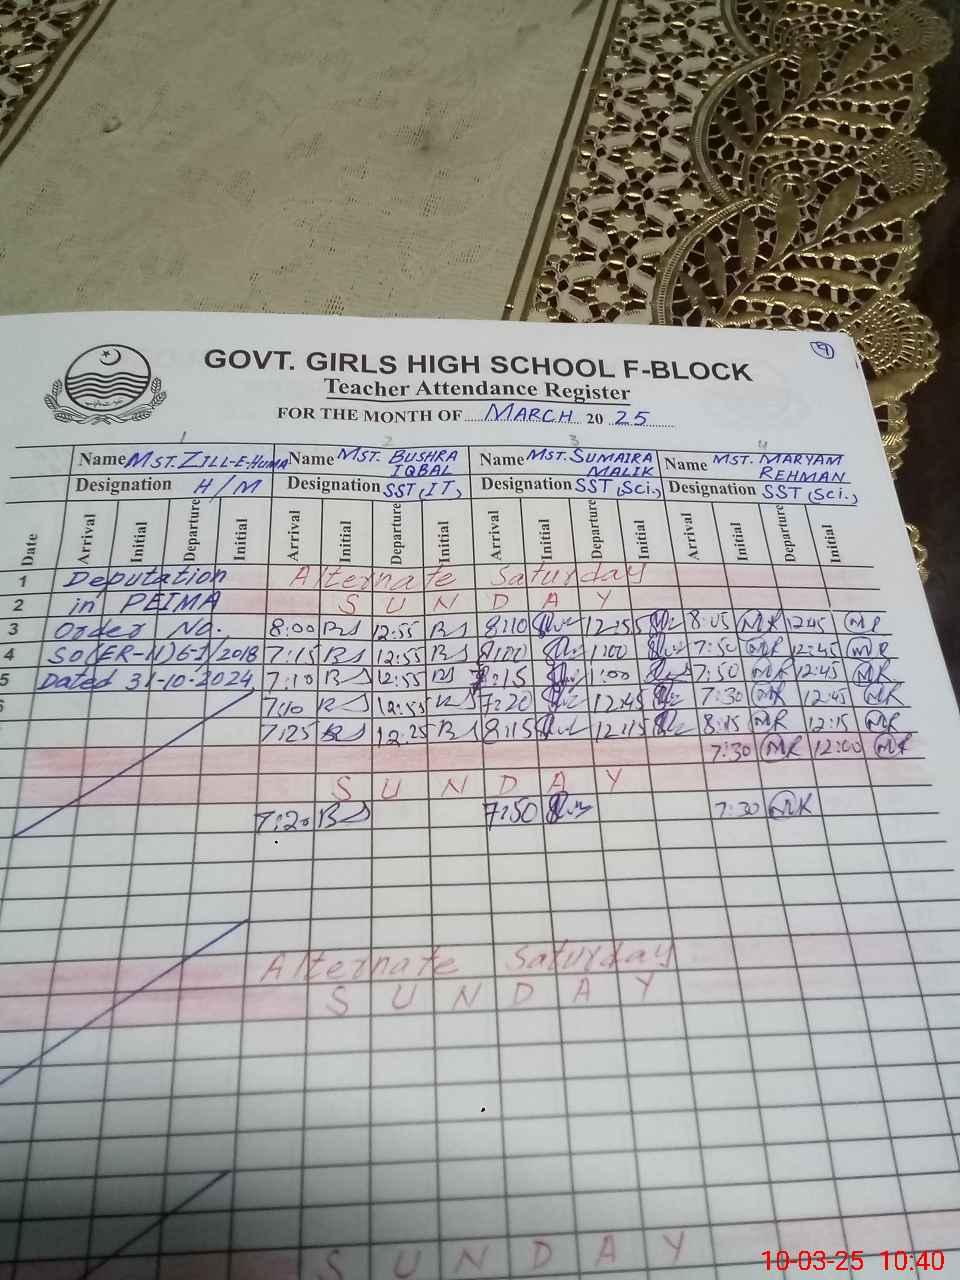 9
GOVT. GIRLS HIGH SCHOOL F-BLOCK
Teacher Attendance Register
FOR THE MONTH OF MARCH 20 25
1 2 3 4
Name MST. ZILL-E-HUMA Name MST. BUSHRA IQBAL Name MST. SUMAIRA MALIK Name MST. MARYAM REHMAN
Designation H/M Designation SST (IT) Designation SST (Sci.) Designation SST (Sci.)
Date Arrival Initial Departure Initial Arrival Initial Departure Initial Arrival Initial Departure Initial Arrival Initial Departure Initial
1 Deputation Alternate Saturday
2 in PEIMA S U N D A Y
3 Order No. 8:00 BS 12:55 BS 8:10 12:55 8:05 MR 12:45 MR
4 SO(ER-II)6-1/2018 7:15 BS 12:55 BS 1:00 7:50 MR 12:45 MR
5 Dated 31-10-2024 7:10 BS 12:55 BS 7:15 1:00 7:50 MR 12:45 MR
7:10 BS 12:55 BS 7:20 12:45 7:30 MR 12:45 MR
7:25 BS 12:25 BS 8:15 12:15 8:15 MR 12:15 MR
7:30 MR 12:00 MR
S U N D A Y
7:20 BS 7:50 7:30 MR
Alternate Saturday
S U N D A Y
S U N D A Y
10-03-25 10:40